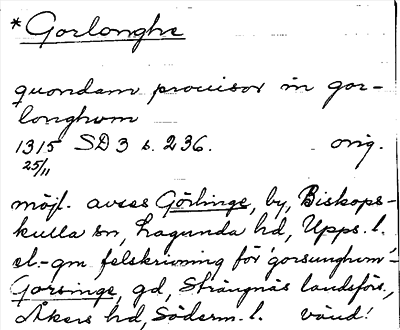 * Gorlonghe
quondam prouisor in gor-
longhom
1315 SD 3 s. 236. orig.
25/11
möjl. avses Görlinge, by, Biskops-
kulla sn, Lagunda hd, Upps. l.
el. gm felskrivning för 'gorsunghum'-
Gorsinge, gd, Strängnäs landsförs.,
Åkers hd, Söderm. l. vänd!